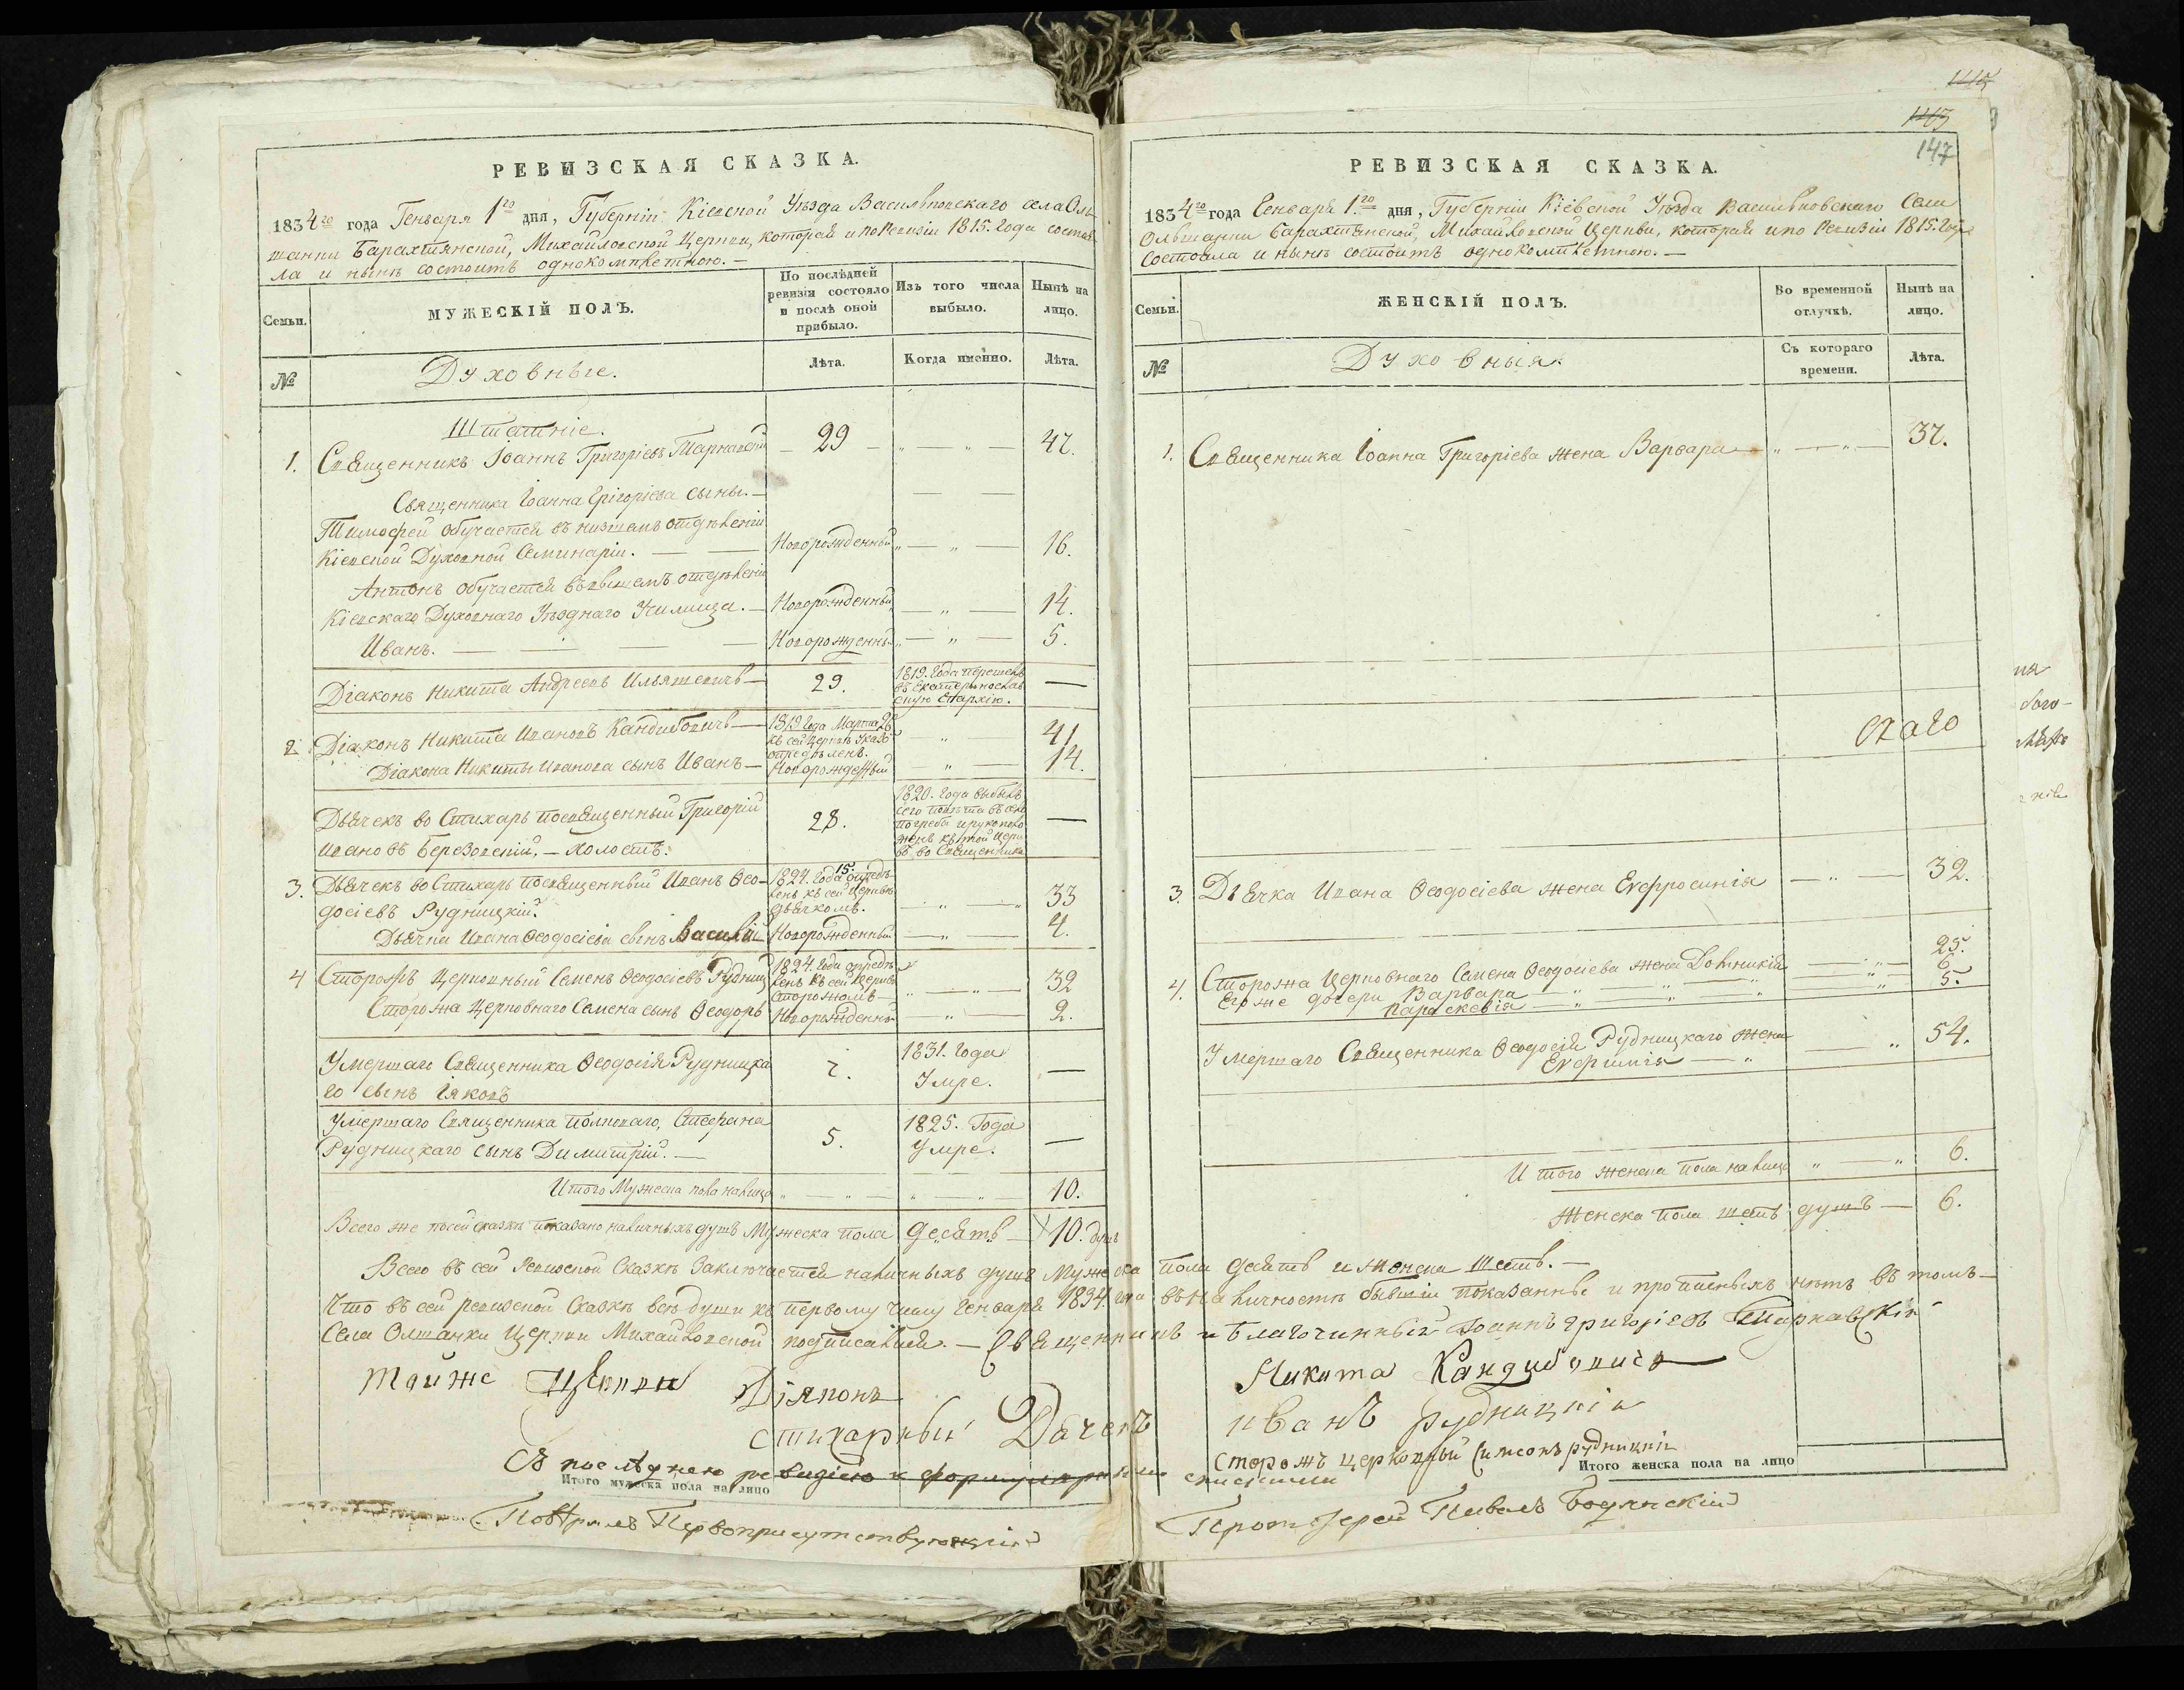 РЕВИЗСКАЯ СКАЗКА.
1834го года Генваря 1го дня, Губерніи Кіевской Уѣзда Васильковскаго села Оль
шанки Барахтянской, Михайловской Церкви, которая и по Ревизіи 1815. года состоя
ла и нынѣ состоитъ однокомплетною. —
Семьи.
МУЖЕСКІЙ ПОЛЪ.
По послѣдней
ревизіи состояло
и послѣ оной
прибыло.
Изъ того числа
выбыло.
Нынѣ на
лицо.
№
Духовные.
Лѣта.
Когда именно.
Лѣта.
Штатніе.
1. Священникъ Іоаннъ Григоріевъ Тарнавскій — 29 — „ — „ — 47.
Священника Іоанна Григоріева сыны. —
Тимофей обучается въ низшемъ отдѣленіи
Кіевской Духовной Семинаріи. — — Новорожденный „ — „ — 16.
Антонъ обучается въ высшемъ отдѣленіи
Кіевскаго Духовнаго Уѣзднаго Училища. — Новорожденный — „ — 14.
Иванъ. — — — — Новорожденны „ — „ — 5.
Діаконъ Никита Андреевъ Ильяшевичъ — 29.
1819. года перешелъ
въ Екатеринослав
скую Епархію. —
2. Діаконъ Никита Ивановъ Кандибовичъ —
1819 года Марта 26
къ сей Церкви указо
опредѣленъ. „ 41
Діакона Никиты Иванова сынъ Иванъ — Новорожденый „ — 14.
Дьячекъ во Стихарь посвященный Григорій
Ивановъ Березовскій. — холостъ. 28.
1820. года выбылъ
сего повѣта въ село
Погреба и рукополо
женъ къ той Церк
вѣ во Священника —
3. Дьячекъ во Стихарь посвященный Иванъ Ѳео-
досіевъ Рудницкій.
1824. года 15 опредѣ-
ленъ къ сей Церкви
дьячкомъ. — „ — „ 33
Дьячка Ивана Ѳеодосіева сынъ Василій Новорожденный — „ — 4.
4 Сторожъ Церковный Семенъ Ѳеодосіевъ Рудниц
1824. года опредѣ
ленъ къ сей Церкви
Сторожомъ — „ — „ — 32
Сторожа Церковнаго Семена сынъ Ѳеодоръ Новорожденны — „ — 2.
Умершаго Священника Ѳеодосія Рудницка
го сынъ Іяковъ 7.
1831. года
Умре. —
Умершаго Священника Полкаваго, Стефана
Рудницкаго сынъ Димитрій. — 5.
1825. Года
Умре. —
Итого Мужеска пола налицо „ — „ — „ — „ — 10.
Всего же по сей сказкѣ показано наличныхъ душъ Мужеска пола десять — 10. душ
РЕВИЗСКАЯ СКАЗКА.
1115
1113
147
1834го года Генваря 1го дня, Губерніи Кіевской Уѣзда Васильковскаго Села
Ольшанки Барахтянской, Михайловской Церкви, которая и по Ревизіи 1815. года
состояла и нынѣ состоитъ однокомплетною. —
Семьи.
ЖЕНСКІЙ ПОЛЪ.
Во временной
отлучкѣ.
Нынѣ на
лицо.
№
Духовныя.
Съ котораго
времени.
Лѣта.
1. Священника Іоанна Григоріева жена Варвара — „ — „ — 37.
3. Дьячка Ивана Ѳеодосіева жена Евфросинія — „ — 32.
4. Сторожа Церковнаго Семена Ѳеодосіева жена Домникія — „ — 25.
Его же дочери Варвара — „ — „ — „ 6
Параскевія — „ — „ — „ 5.
Умершаго Священника Ѳеодосія Рудницкаго жена
Евфимія — „ — „ 54.
Итого женска пола налице „ — „ 6.
Женска пола шесть душъ — 6.
Всего въ сей Ревизской Сказкѣ Заключается наличныхъ душъ Мужеска пола десять и женска шесть. —
Что въ сей ревизской Сказкѣ всѣ души къ первому числу Генваря 1834. года въ наличности бывшіи показанны и прописныхъ нѣтъ въ томъ —
Села Олшанки Церкви Михайловской подписались. — Священникъ и Благочинный Іоаннъ Григоріевъ Тарнавскій
тойже Церкви Діяконъ Никита Кандибовичъ
стихарный Дячекъ Иванъ Рудницкій
Сторожъ церковный Симеонъ Рудницкій
Съ послѣднею ревизіею и формулярными списками
Итого мужеска пола на лицо
Итого женска пола на лицо
Повѣрялъ Первоприсутствующій Протоіерей Павелъ Бодянскій